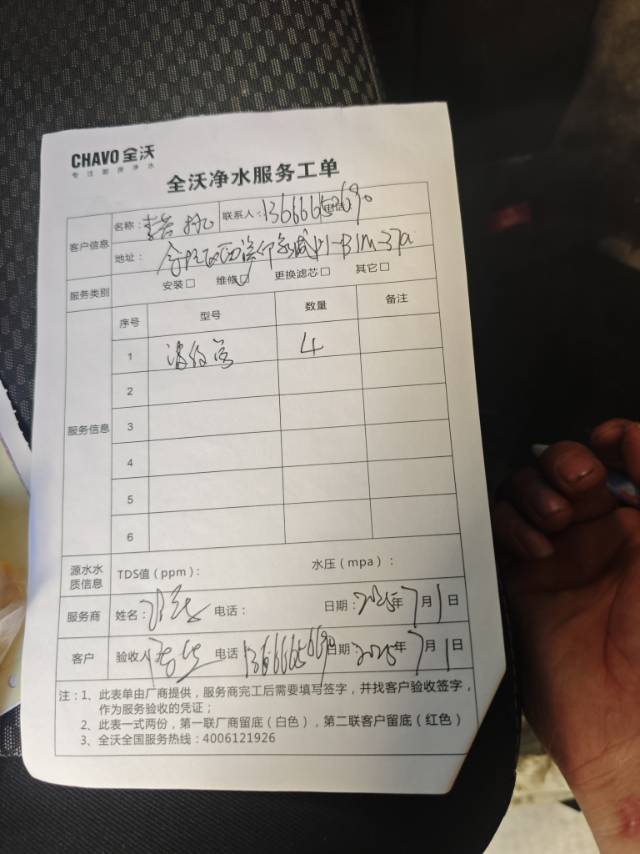 CHAVO 全沃
专注厨房净水
全沃净水服务工单
客户信息 名称： 联系人： 电话：
地址：
服务类别 安装□ 维修□ 更换滤芯□ 其它□
服务信息 序号 型号 数量 备注
1 波纹管 4
2
3
4
5
6
源水水质信息 TDS值（ppm）： 水压（mpa）：
服务商 姓名： 电话： 日期：2025年7月1日
客户 验收人 电话 日期：2025年7月1日
注：1、此表单由厂商提供，服务商完工后需要填写签字，并找客户验收签字，
作为服务验收的凭证；
2、此表一式两份，第一联厂商留底（白色），第二联客户留底（红色）
3、全沃全国服务热线：4006121926